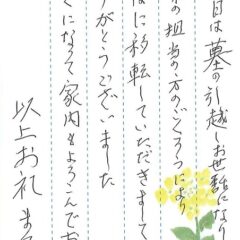 目は墓の引越しお世話になり
の担当の方のごくろうにより
に移転していただきまして
がとうございました
くになって家内もよろこんでお
以上お礼ま